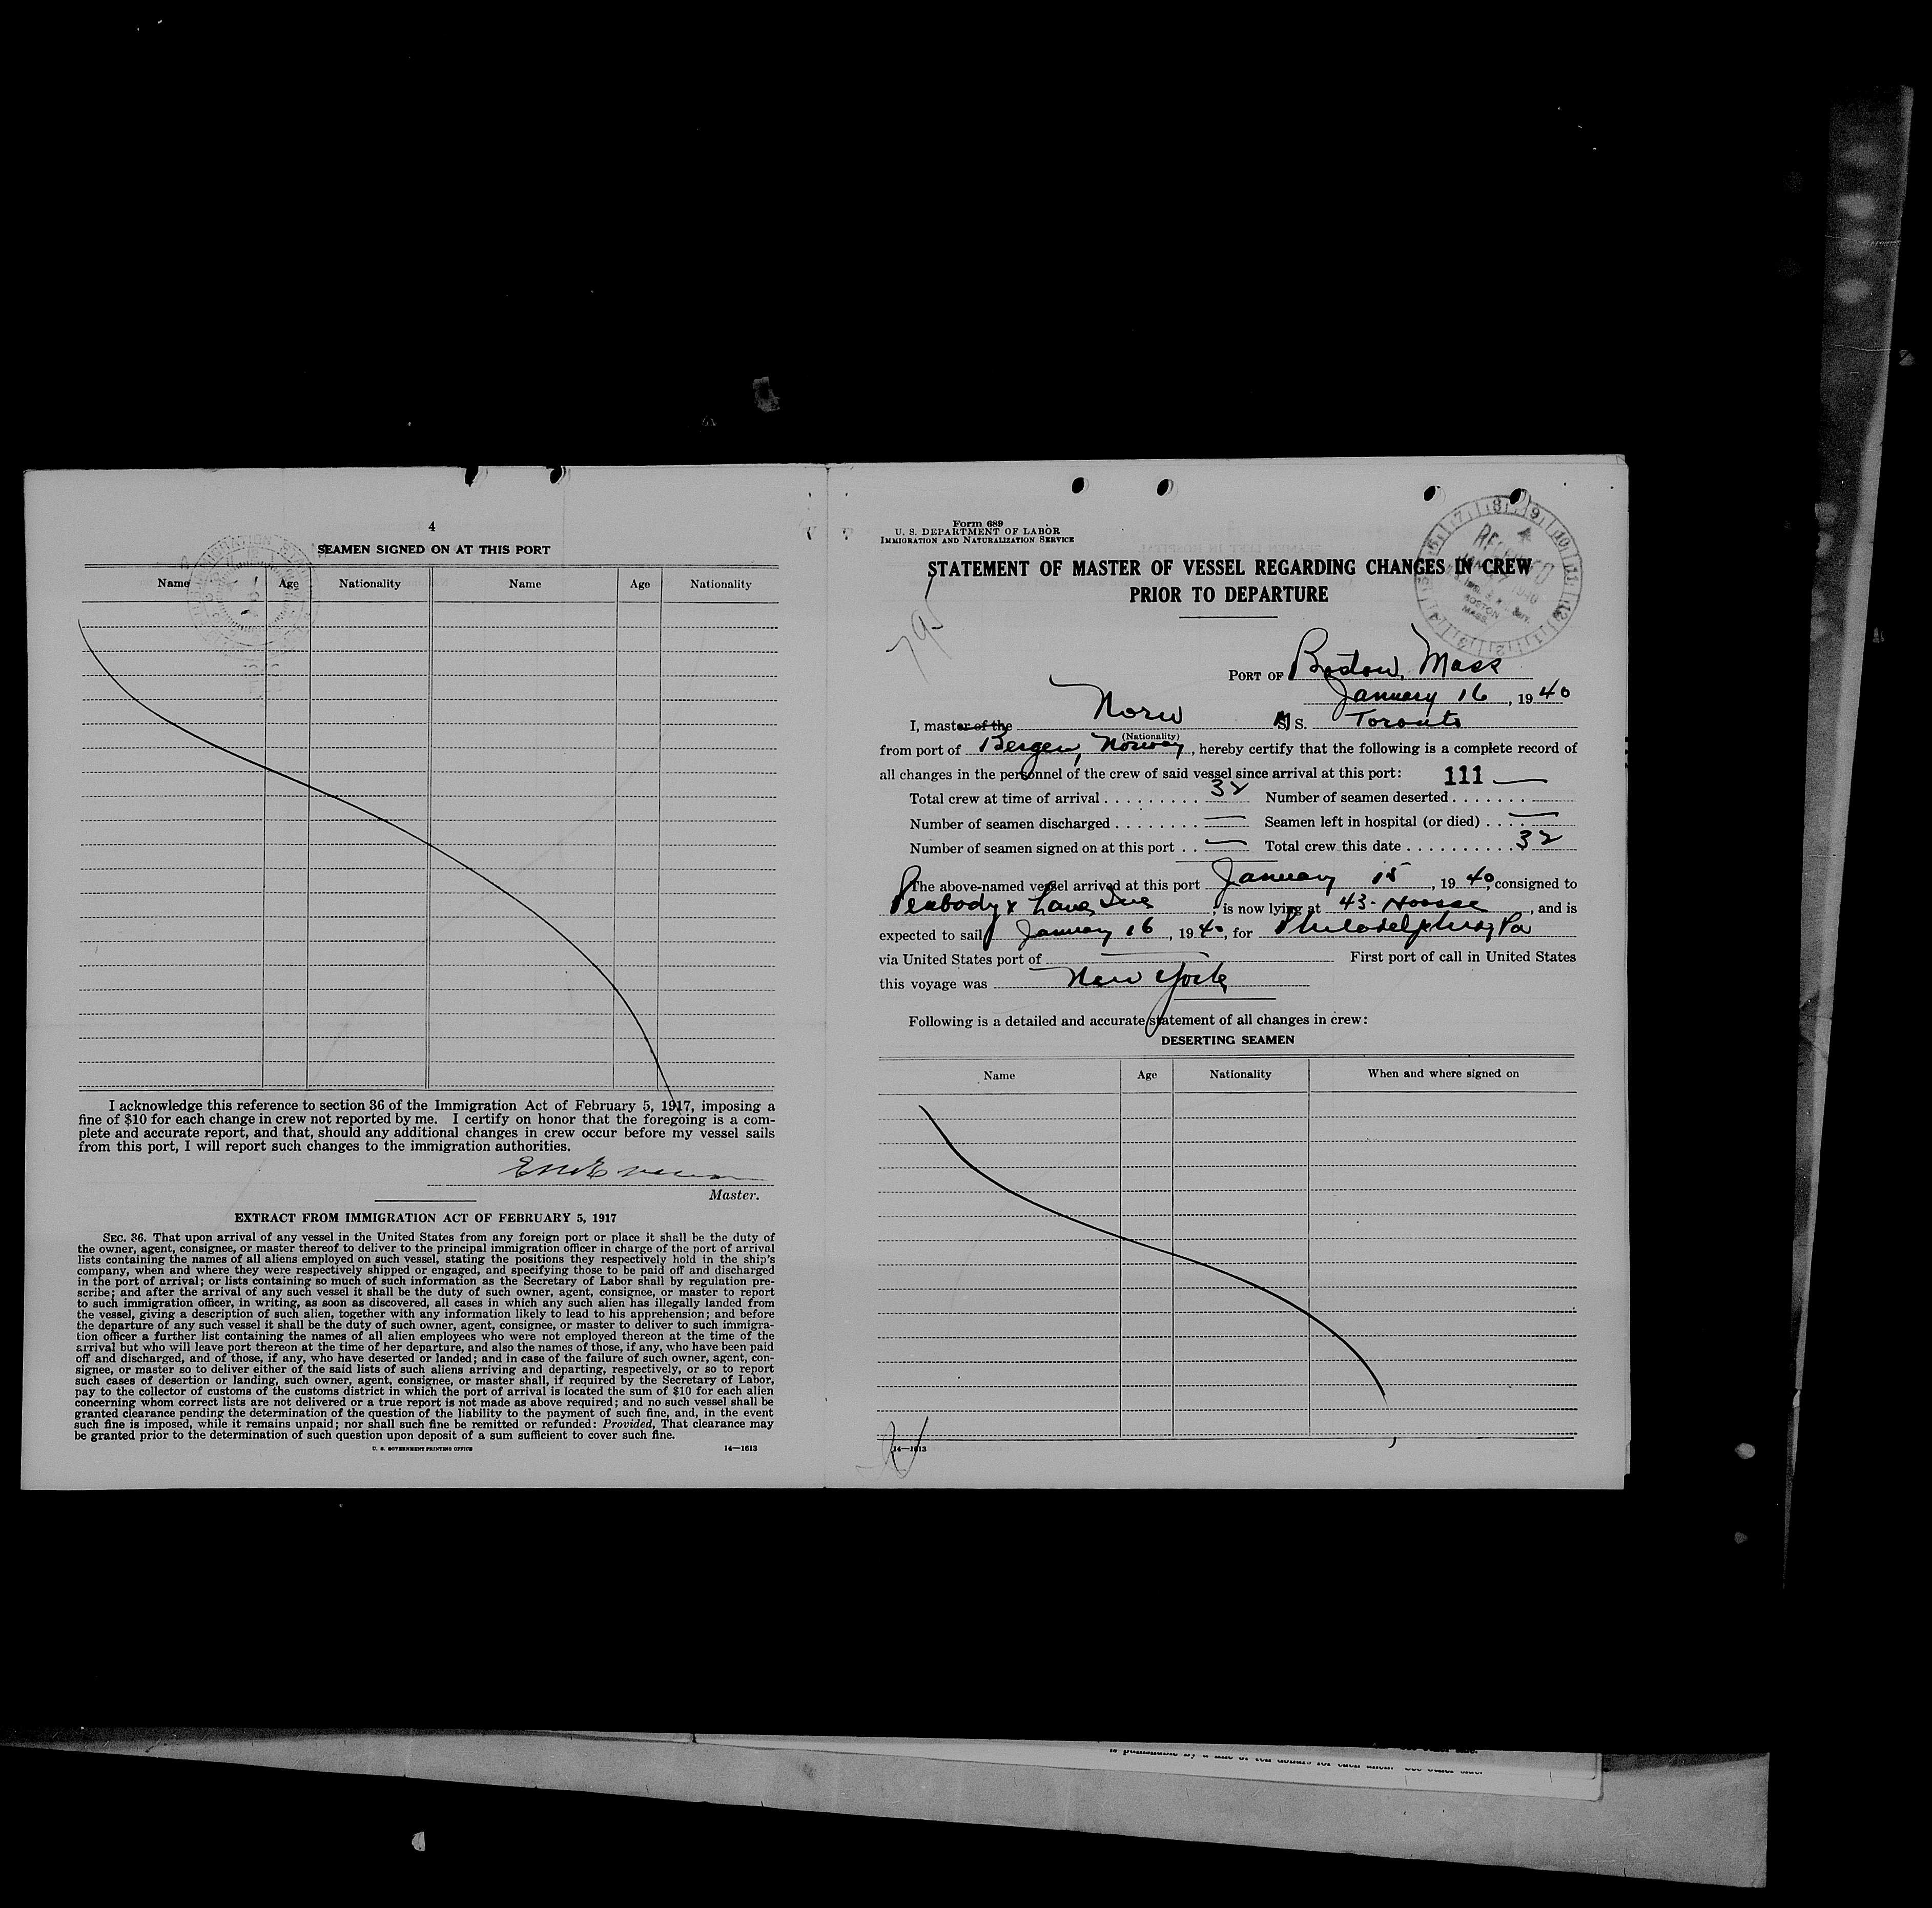 4
SEAMEN SIGNED ON AT THIS PORT
Name Age Nationality Name Age Nationality
I acknowledge this reference to section 36 of the Immigration Act of February 5, 1917, imposing a
fine of $10 for each change in crew not reported by me. I certify on honor that the foregoing is a com-
plete and accurate report, and that, should any additional changes in crew occur before my vessel sails
from this port, I will report such changes to the immigration authorities.
Master.
EXTRACT FROM IMMIGRATION ACT OF FEBRUARY 5, 1917
SEC. 36. That upon arrival of any vessel in the United States from any foreign port or place it shall be the duty of
the owner, agent, consignee, or master thereof to deliver to the principal immigration officer in charge of the port of arrival
lists containing the names of all aliens employed on such vessel, stating the positions they respectively hold in the ship's
company, when and where they were respectively shipped or engaged, and specifying those to be paid off and discharged
in the port of arrival; or lists containing so much of such information as the Secretary of Labor shall by regulation pre-
scribe; and after the arrival of any such vessel it shall be the duty of such owner, agent, consignee, or master to report
to such immigration officer, in writing, as soon as discovered, all cases in which any such alien has illegally landed from
the vessel, giving a description of such alien, together with any information likely to lead to his apprehension; and before
the departure of any such vessel it shall be the duty of such owner, agent, consignee, or master to deliver to such immigra-
tion officer a further list containing the names of all alien employees who were not employed thereon at the time of the
arrival but who will leave port thereon at the time of her departure, and also the names of those, if any, who have been paid
off and discharged, and of those, if any, who have deserted or landed; and in case of the failure of such owner, agent, con-
signee, or master so to deliver either of the said lists of such aliens arriving and departing, respectively, or so to report
such cases of desertion or landing, such owner, agent, consignee, or master shall, if required by the Secretary of Labor,
pay to the collector of customs of the customs district in which the port of arrival is located the sum of $10 for each alien
concerning whom correct lists are not delivered or a true report is not made as above required; and no such vessel shall be
granted clearance pending the determination of the question of the liability to the payment of such fine, and, in the event
such fine is imposed, while it remains unpaid; nor shall such fine be remitted or refunded: Provided, That clearance may
be granted prior to the determination of such question upon deposit of a sum sufficient to cover such fine.
U. S. GOVERNMENT PRINTING OFFICE 14—1613
Form 689
U. S. DEPARTMENT OF LABOR
IMMIGRATION AND NATURALIZATION SERVICE
RECEIVED
JAN 17 1940
BOSTON
MASS.
STATEMENT OF MASTER OF VESSEL REGARDING CHANGES IN CREW
PRIOR TO DEPARTURE
795
PORT OF Boston, Mass
January 16, 1940
I, master of the Norw M S. Toronto
(Nationality)
from port of Bergen, Norway, hereby certify that the following is a complete record of
all changes in the personnel of the crew of said vessel since arrival at this port: 111
Total crew at time of arrival 32 Number of seamen deserted —
Number of seamen discharged — Seamen left in hospital (or died) —
Number of seamen signed on at this port — Total crew this date 32
The above-named vessel arrived at this port January 15, 1940, consigned to
Peabody & Lane, Inc, is now lying at 43-Hoosac, and is
expected to sail January 16, 1940, for Philadelphia, Pa
via United States port of — First port of call in United States
this voyage was New York
Following is a detailed and accurate statement of all changes in crew:
DESERTING SEAMEN
Name Age Nationality When and where signed on
14—1613
is punishable by a fine of ten dollars for each alien. See other side.